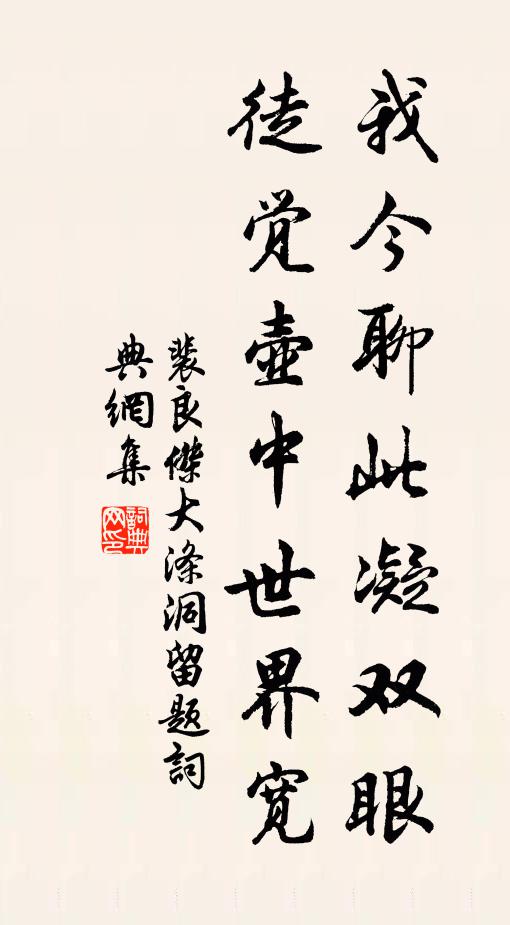 我今聊此凝双眼
徒觉壶中世界宽
裴良傑大涤洞留题詞
典網集
詞典网印